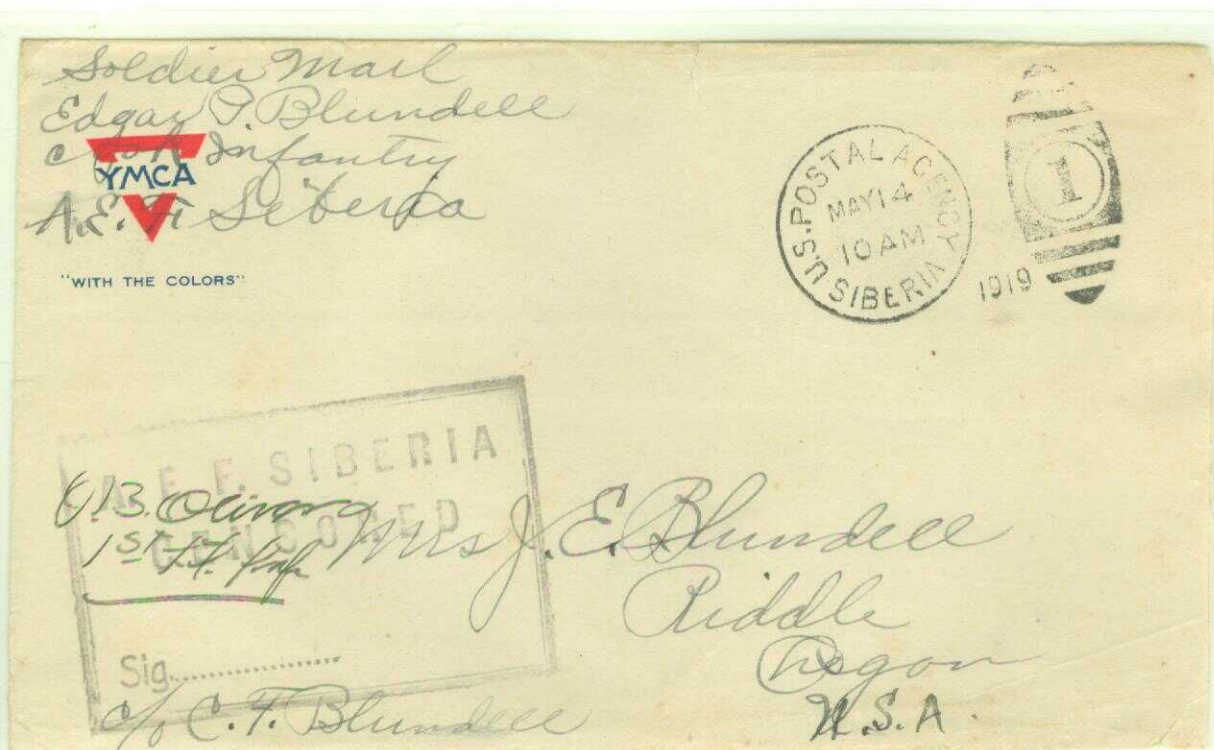 Soldier Mail
Edgar P. Blundell
Infantry
A.E.F. Siberia
YMCA
"WITH THE COLORS"
U.S. POSTAL AGENCY
MAY 14
10 AM
SIBERIA
1919
1
A. E. F. SIBERIA
CENSORED
1st Lt. Inf
Sig..............
Mrs J. E. Blundell
Riddle
Oregon
U.S.A.
c/o C. F. Blundell